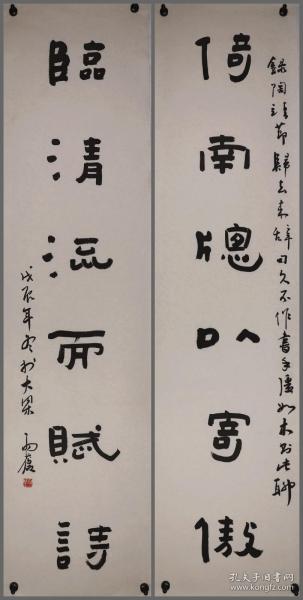 倚南牕以寄傲
錄陶靖節歸去來辭句久不作書手僵如木到此聊
臨清流而賦詩
戊辰年冬於大梁
孔夫子旧书网